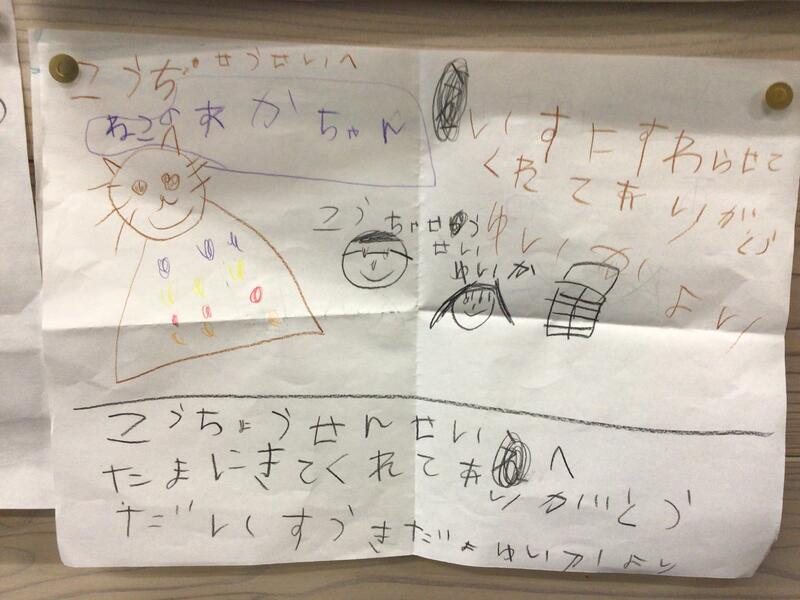 こうぢ せうせいへ
ねこのあかちゃん
いすにすわらせて
くれてありがとう
ゆいかより
こうちゃせう
せい
ゆいか
こうちょうせんせい へ
たまにきてくれてありがとう
だいすづきだよ ゆいかより